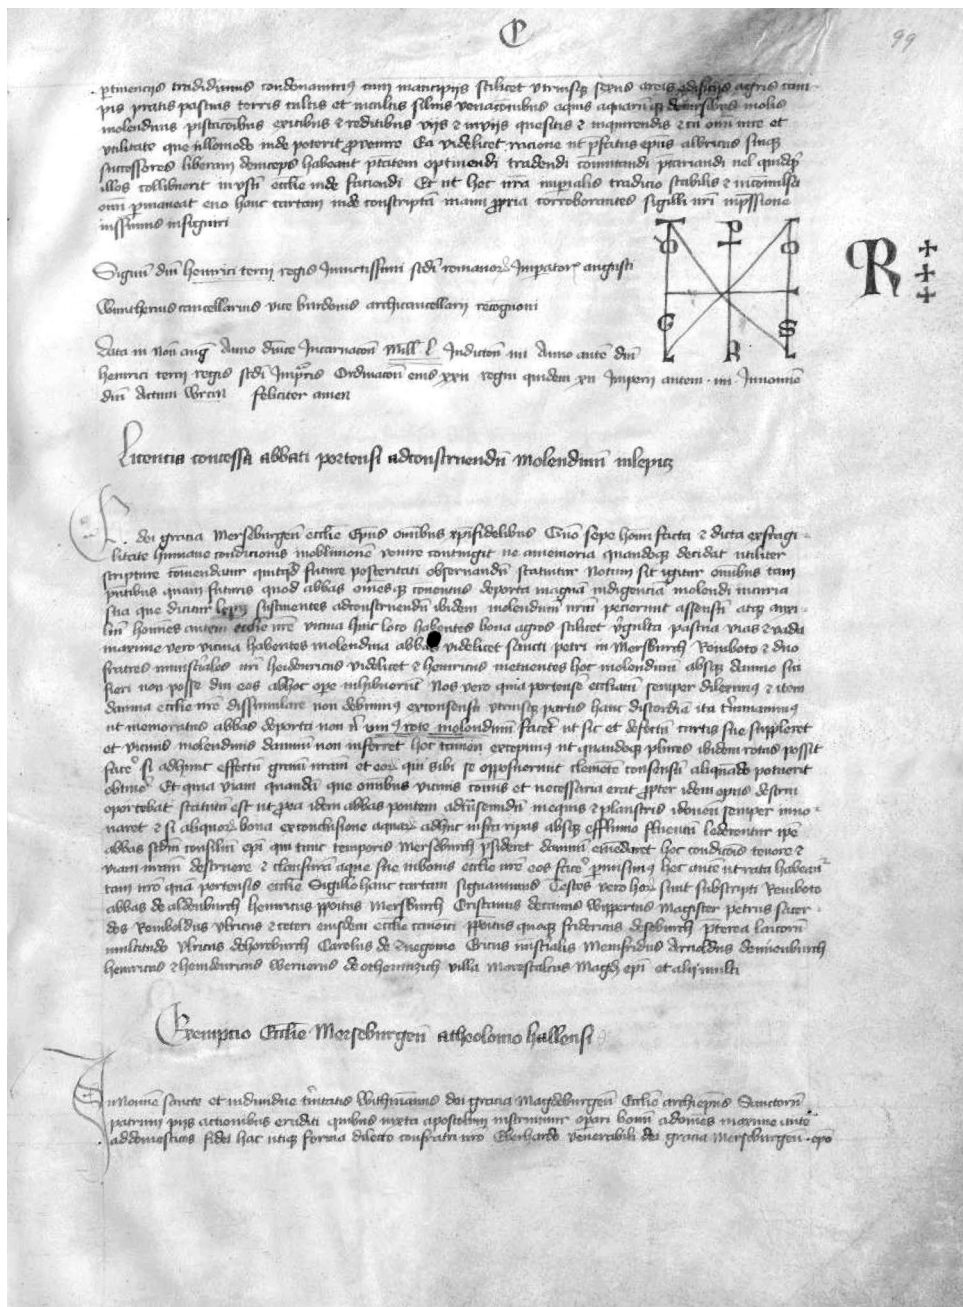 C
99
ptinencijs tradidimus condonamus cum mancipijs scilicet utriusq sexus areis edificijs agris cam
pis pratis pascuis terris cultis et incultis siluis venacionibus aquis aquarumq decursibus molis
molendinis piscacionibus exitibus & reditibus vijs & invijs quesitis & inquirendis & cu omi iure et
utilitate que ullomodo inde poterit prouenire Ea videlicet racione ut pfatus epus albricus suiq
successores liberam deinceps habeant ptatem optinendi tradendi comutandi pcariandi uel quidqd
illos collibuerit in usu ecclie inde faciendi Et ut hec nra impialis tradicio stabilis & inconuulsa
omi pmaneat euo hanc cartam inde conscripta manu ppria corroborantes sigilli nri inpssione
iussimus insigniri
Signu dni heinrici tercij regis Inuictissimi scdi romanor Impator augusti
Wintherius cancellarius vice bardonis archicancellarij recognoui
Data in non aug Anno dnice Incarnacon Mill L Indicton iiii Anno aute dni
heinrici tercij regis scdi Impris Ordinacon eius xxii regni quidem xii Imperij autem iiii Innomie
dni Actum feliciter amen
R
Licencia concessa abbati portensi adconstruendu molendinu inlepitz
E dei gracia Merseburgen ecclie Epus omibus xpifidelibus Cum sepe hoim facta & dicta exfragi
litate humane condicionis inobliuionem venire contingit ne amemoria quandoq decidat utiliter
scripture comendatur quitqd future posteritati obseruandu statuitur Notum sit igitur omibus tam
pntibus quam futuris quod abbas omesq conuentus deporta magna indigencia molendi incuria
sua que dicitur lepiz sustinentes adconstruendu ibidem molendinu nrm pecierunt assensu atq auxi
liu homines autem ecclie nre vicina huic loco habentes bona agros scilicet virgulta pascua vias & vada
maxime vero vicina habentes molendina abbas videlicet sancti petri in Mersburch Reinboto & duo
fratres ministiales nri heidenricus videlicet & heinricus metuentes hoc molendinu absq damno sui
fieri non posse diu eos abhoc ope inhibuerut Nos vero quia portense eccliam semper dileximus & item
damna ecclie nre dissimulare non debuimus exconsensu utriusq partis hanc discordia ita tminauimus
ut memoratus abbas deporta non n unius rote molendinu facet ut sic et defectu curtis sue suppleret
et vicinis molendinis damnu non inferret hoc tamen excepimus ut quandoq plures ibidem rotas possit
face si adhuc effectu gram nram et eor qui sibi se opposuerunt clemete consensu aliquado potuerit
obtine Et quia viam quandam que omibus vicinis comis et necessaria erat propter idem opus destrui
oportebat statutu est ut pea idem abbas pontem adtnseundu inequis & plaustris idoneu semper inno
uaret & si aliquor bona exconclusione aquar adhuc infra ripas absq effluuio fluentu lederentur ipe
abbas scdm consiliu epi qui tunc temporis Merseburch psideret damnu emedaret hoc condicois tenore &
viam nram destruere & clausura aque sue inbonis ecclie nre eos face pmisimus hec aute ut rata habeantur
tam nre qua portensis ecclie Sigillo hanc cartam signauimus Testes vero hor sunt subscripti Reinboto
abbas de aldenburch heinricus ppoitus Mersburch Cristianus decanus Wippertus Magister petrus sacer
dos Reinboldus Ulricus & ceteri eiusdem ecclie canoici ppoitus quoq fridericus deseburch pterea laicoru
multitudo Ulricus Carolus de Ericus miistialis Meinfridus Arnoldus
heinricus & heindenricus Wernerus de villa Marescalcus Magd epi et alij multi
Exempcio Ecclie Merseburgen atheolonio hallensi
In Nomie sancte et indiuidue trinitatis Withmanus dei gracia Magdeburgen Ecclie archiepus Sanctoru
patrum pijs actionibus eruditi quibus iuxta apostolum instruimur opari bonu adomes maxime aute
addomesticos fidei hac utiq forma dilecto confratri nro Eberhardo venerabili dei gracia Merseburgen epo